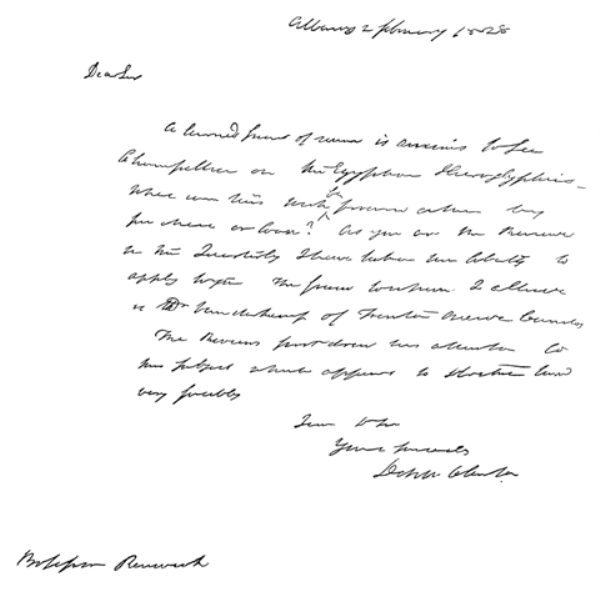 Albany 2 February 1828
Dear Sir
A learned friend of mine is anxious to see
Champollion on the Egyptian Hieroglyphics -
Where can this work be procured either by
purchase or loan? As you are the Reviewer
in the Quarterly I have taken the liberty to
apply to you. The friend to whom I allude
is Dr Vanderkemp of Trenton Oneida County
The Review first drew his attention to
this subject which appears to
very forcibly
I am
Yours sincerely
DeWitt Clinton
Professor Renwick